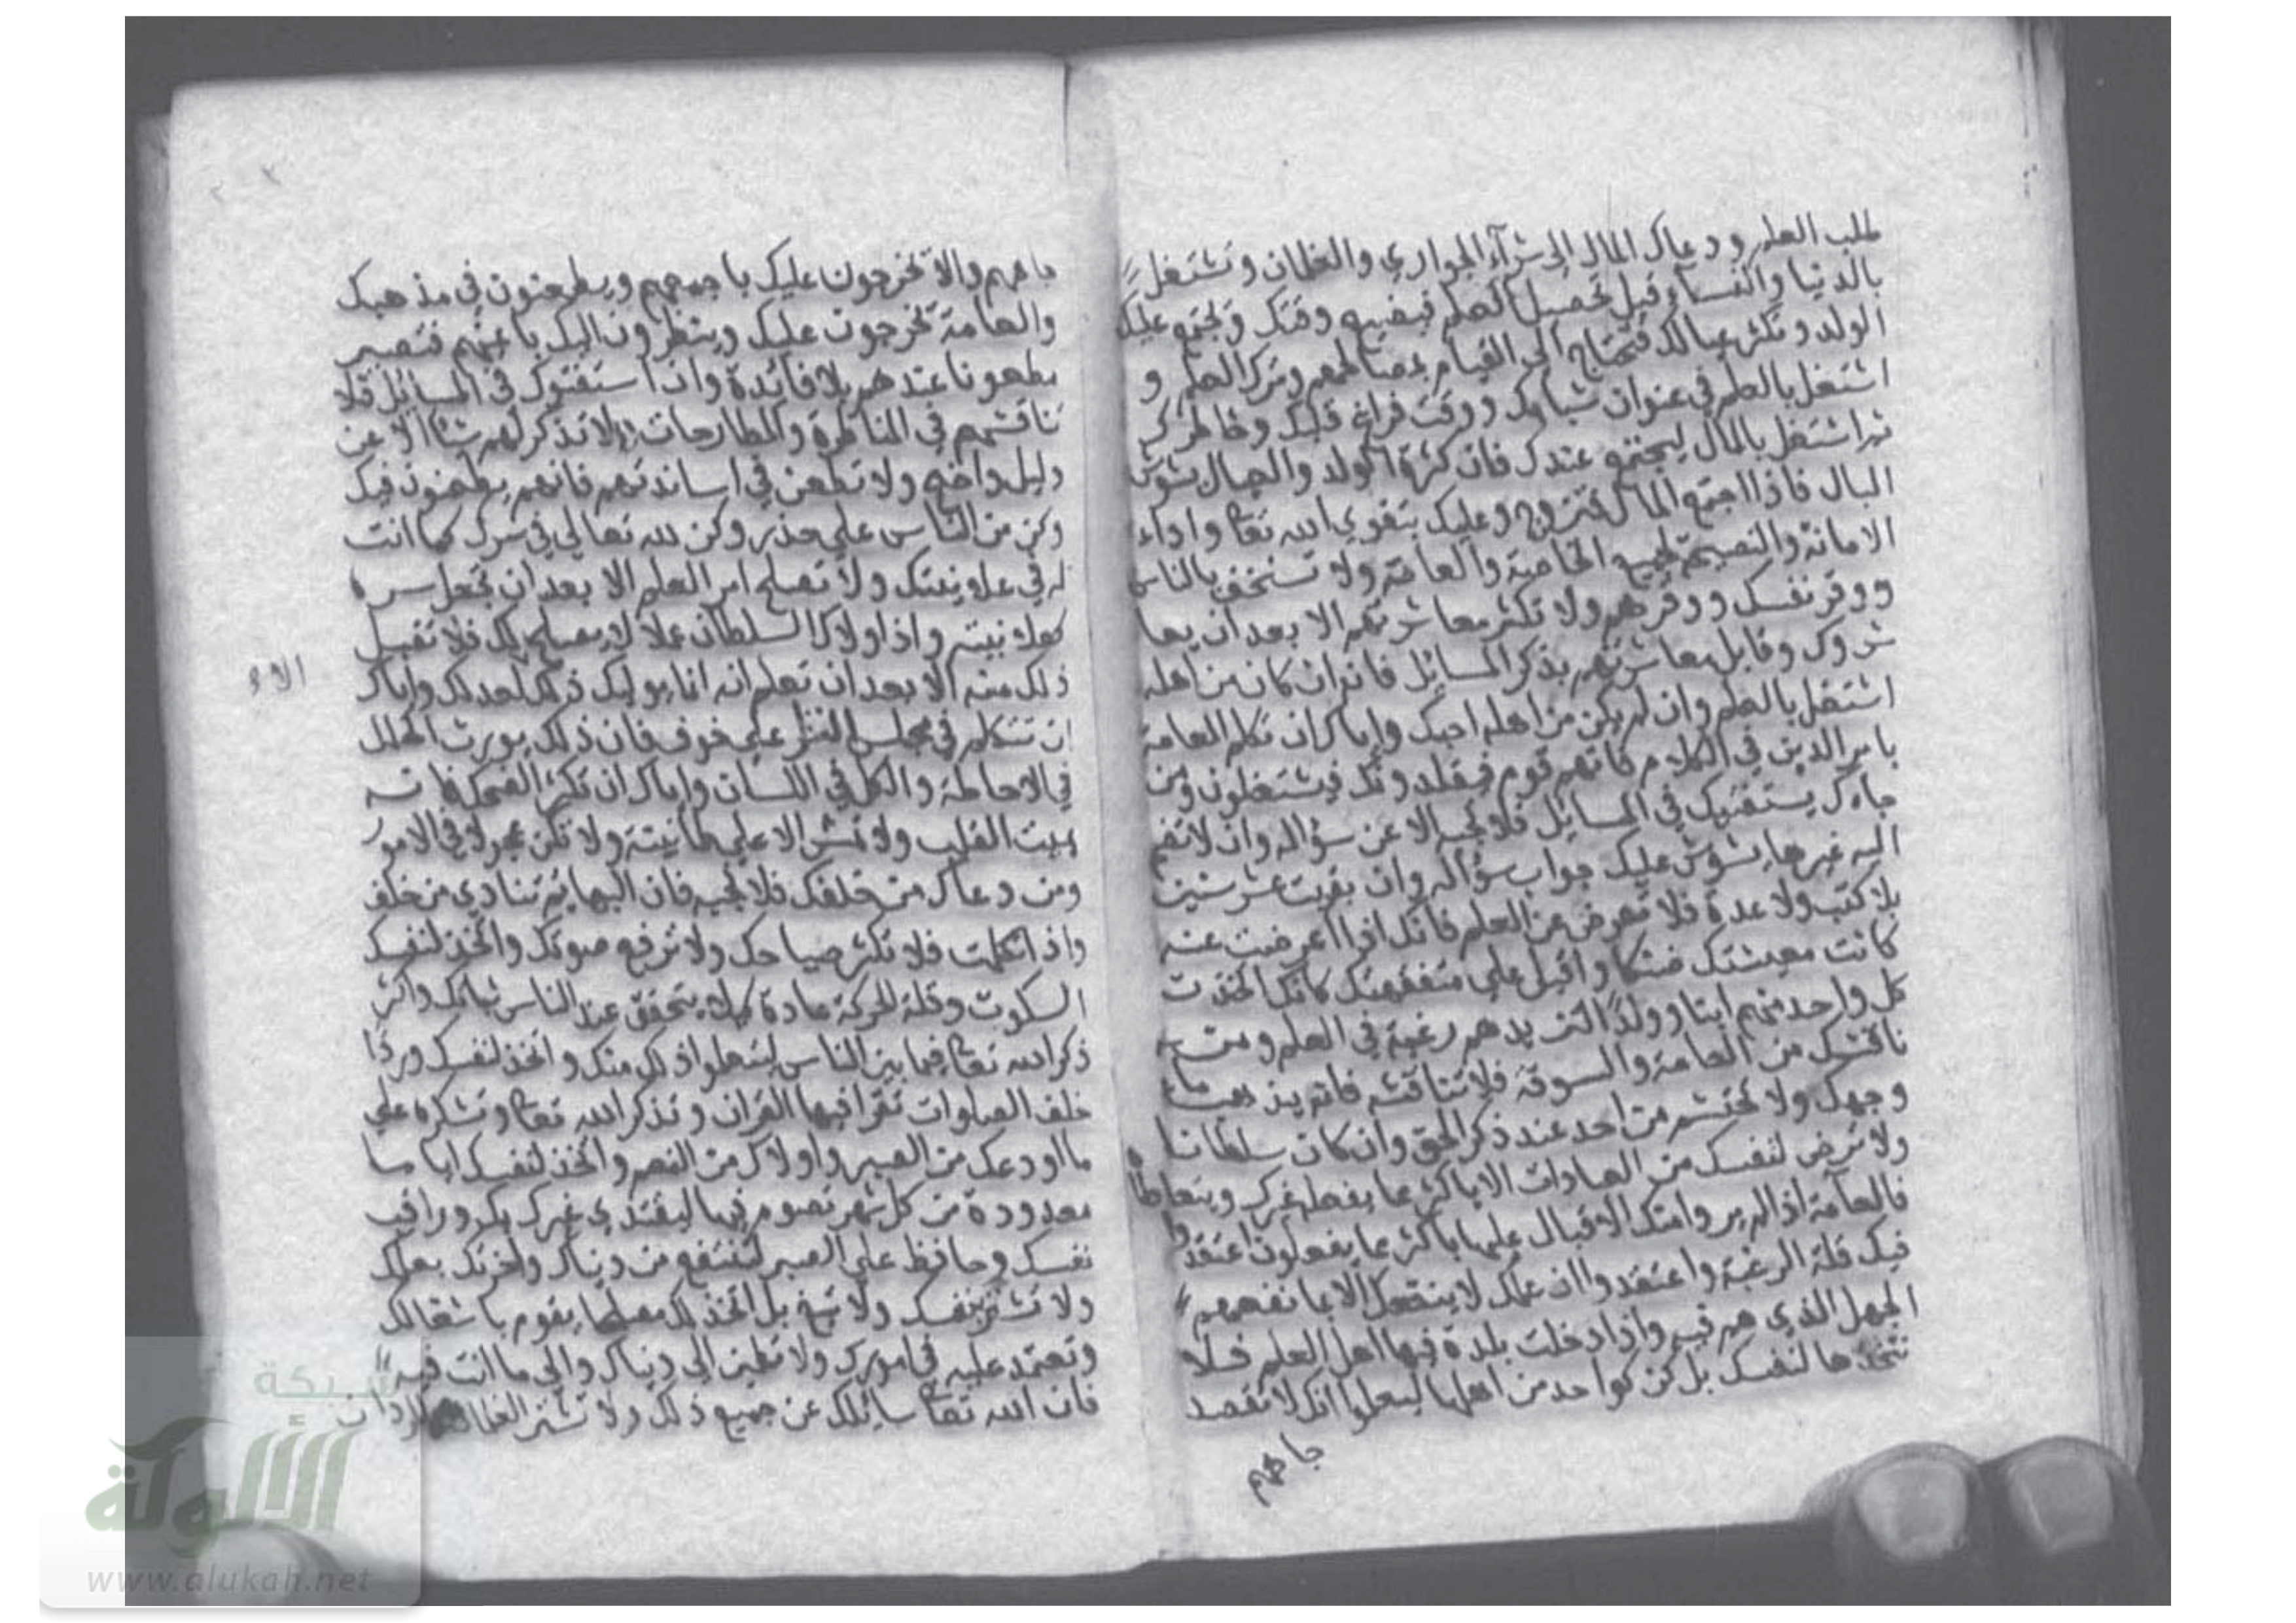 طلب العلم ودعاك المال الى شرآء الجواري والغلمان وتشتغل
بالدنيا والنسآء قبل تحصيل العلم فيضيع وقتك وتجتمع عليك
الولد وتكثر عيالك فتحتاج الى القيام بمصالحهم وترك العلم و
اشتغل بالعلم في عنوان شبابك ووقت فراغ قلبك وخاطرك
ثم اشتغل بالمال ليجتمع عندك فان كثرة الولد والعيال يشوش
البال فاذا اجتمع المال فتزوج وعليك بتقوى الله تعا واداء
الامانة والنصيحة لجميع الخاصة والعامة ولا تستخف بالناس
ووقر نفسك ووقرهم ولا تكثر معاشرتهم الا بعد ان يعا
شروك وقابل معاشرتهم بذكر المسائل فانه ان كان من اهله
اشتغل بالعلم وان لم يكن من اهله احبك واياك ان تكلم العامة
بامر الدين في الكلام فانهم قوم فيقلدونك فيشتغلون ومن
جاءك يستفتيك في المسائل فلا تجب الا عن سؤاله وان لا تضم
اليه غيرها يشوش عليك جواب سؤاله وان بقيت عشر سنين
بلا كتب ولا عدة فلا تعرض عن العلم فانك اذا اعرضت عنه
كانت معيشتك ضنكا واقبل على متفقهتك كانك اتخذت
كل واحد منهم ابنا وولدا لتزيدهم رغبة في العلم ومن
ناقشك من العامة والسوقة فلا تناقشه فانه يذهب ماء
وجهك ولا تحتشم من احد عند ذكر الحق وان كان سلطانا
ولا ترض لنفسك من العبادات الا باكثر مما يفعله غيرك ويتعاطاها
فالعآمة اذا لم يروا منك الاقبال عليها باكثر مما يفعلون اعتقدوا
فيك قلة الرغبة واعتقدوا ان علمك لا ينفعك الا ما نفعهم
الجهل الذي هم فيه واذا دخلت بلدة فيها اهل العلم فلا
تتخذها لنفسك بل كن كواحد من اهلها ليعلموا انك لا تقصد
جاههم
جاههم والا تخرجون عليك باجمعهم ويطعنون في مذهبك
والعامة تخرجون عليك وينظرون اليك باعينهم فتصير
مطعونا عندهم بلا فائدة وان استفتوك في المسائل فلا
تناقشهم في المناظرة والمطارحات ولا تذكر لهم شيئا الا عن
دليل واضح ولا تطعن في اساتذتهم فانهم يطعنون فيك
وكن من الناس على حذر وكن لله تعالى في سرك كما انت
له في علانيتك ولا تصلح امر العلم الا بعد ان تجعل سره
كعلانيته واذا ولاك السلطان عملا لا يصلح لك فلا تقبل
ذلك منه الا بعد ان تعلم انه انما يوليك ذلك لعلمك واياك
الا و
ان تتكلم في مجلس النظر على خوف فان ذلك يورث الخلل
في الاحاطة والكل في اللسان واياك ان تكثر الضحك فانه
يميت القلب ولا تمش الا على طمانينة ولا تكن عجولا في الامور
ومن دعاك من خلفك فلا تجبه فان البهايم تنادي من خلف
واذا تكلمت فلا تكثر صياحك ولا ترفع صوتك واتخذ لنفسك
السكوت وقلة الحركة عادة كيلا يتحقق عند الناس ثباتك واكثر
ذكر الله تعا فيما بين الناس ليتعلموا ذلك منك واتخذ لنفسك وردا
خلف الصلوات تقرا فيها القران وتذكر الله تعا وتشكره على
ما اودعك من الصبر واولاك من النعم واتخذ لنفسك اياما
معدودة من كل شهر تصوم فيها ليقتدي غيرك بك وراقب
نفسك وحافظ على الصبر لتنتفع من دنياك واخرتك بعلمك
ولا تشتر بنفسك ولا تبع بل اتخذ لك مصلحا يقوم باشغالك
وتعتمد عليه في امورك ولا تطمئن الى دنياك والى ما انت فيه
فان الله تعا سائلك عن جميع ذلك ولا تشتر الغلمان